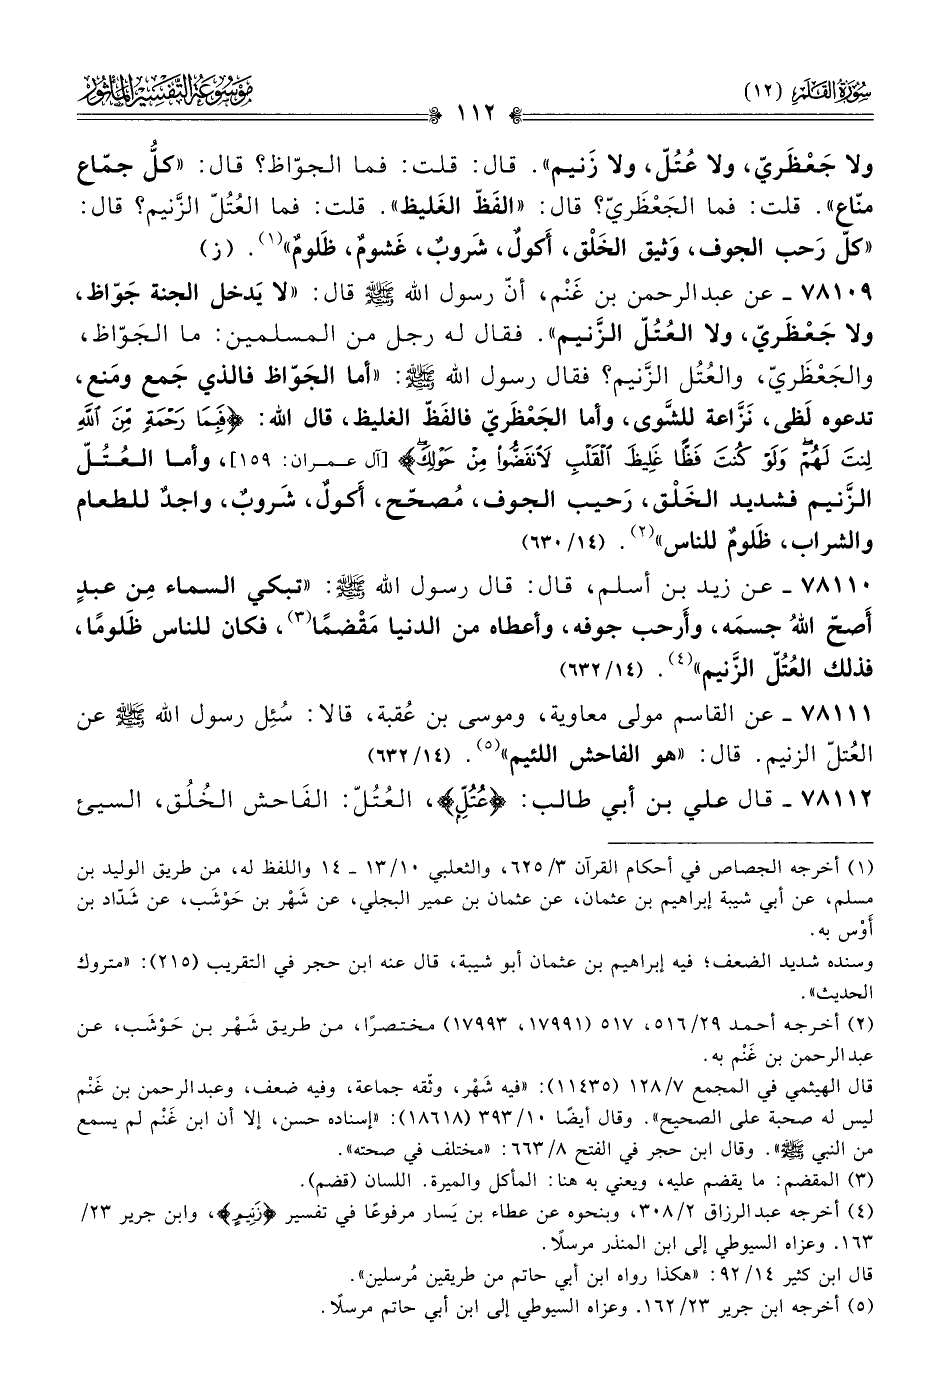 سُورَةُ القَلَمِ (١٢)
١١٢
مَوْسُوعَةُ التَّفْسِيرِ المَأْثُورِ
ولا جَعْظَريّ، ولا عُتُلّ، ولا زَنيم». قال: قلت: فما الجوّاظ؟ قال: «كلُّ جمّاع
منّاع». قلت: فما الجَعْظَريّ؟ قال: «الفَظّ الغَليظ». قلت: فما العُتُلّ الزَّنيم؟ قال:
«كلّ رَحب الجوف، وَثيق الخَلْق، أَكولٌ، شَروبٌ، غَشومٌ، ظَلومٌ»(١). (ز)
٧٨١٠٩ ـ عن عبدالرحمن بن غَنْم، أنّ رسول الله ﷺ قال: «لا يَدخل الجنة جَوّاظ،
ولا جَعْظَريّ، ولا العُتُلّ الزَّنيم». فقال له رجل من المسلمين: ما الجَوّاظ،
والجَعْظَريّ، والعُتُل الزَّنيم؟ فقال رسول الله ﷺ: «أما الجَوّاظ فالذي جَمع ومَنع،
تدعوه لَظى، نَزَّاعة للشَّوى، وأما الجَعْظَريّ فالفَظّ الغليظ، قال الله: ﴿فَبِمَا رَحْمَةٍ مِّنَ ٱللَّهِ
لِنتَ لَهُمْۖ وَلَوْ كُنتَ فَظًّا غَلِيظَ ٱلْقَلْبِ لَٱنفَضُّوا۟ مِنْ حَوْلِكَۖ﴾ [آل عمران: ١٥٩]، وأما العُتُلّ
الزَّنيم فشديد الخَلْق، رَحيب الجوف، مُصحّح، أَكولٌ، شَروبٌ، واجدٌ للطعام
والشراب، ظَلومٌ للناس»(٢). (١٤/ ٦٣٠)
٧٨١١٠ ـ عن زيد بن أسلم، قال: قال رسول الله ﷺ: «تبكي السماء مِن عبدٍ
أَصحّ اللهُ جسمَه، وأَرحب جوفه، وأعطاه من الدنيا مَقْضمًا(٣)، فكان للناس ظَلومًا،
فذلك العُتُلّ الزَّنيم»(٤). (١٤/ ٦٣٢)
٧٨١١١ ـ عن القاسم مولى معاوية، وموسى بن عُقبة، قالا: سُئِل رسول الله ﷺ عن
العُتلّ الزنيم. قال: «هو الفاحش اللئيم»(٥). (١٤/ ٦٣٢)
٧٨١١٢ ـ قال علي بن أبي طالب: ﴿عُتُلٍّ﴾، العُتُلّ: الفَاحش الخُلُق، السيئ
(١) أخرجه الجصاص في أحكام القرآن ٣/ ٦٢٥، والثعلبي ١٠/ ١٣ ـ ١٤ واللفظ له، من طريق الوليد بن
مسلم، عن أبي شيبة إبراهيم بن عثمان، عن عثمان بن عمير البجلي، عن شَهْر بن حَوْشَب، عن شَدّاد بن
أَوْس به.
وسنده شديد الضعف؛ فيه إبراهيم بن عثمان أبو شيبة، قال عنه ابن حجر في التقريب (٢١٥): «متروك
الحديث».
(٢) أخرجه أحمد ٢٩/ ٥١٦، ٥١٧ (١٧٩٩١، ١٧٩٩٣) مختصرًا، من طريق شَهْر بن حَوْشَب، عن
عبدالرحمن بن غَنْم به.
قال الهيثمي في المجمع ٧/ ١٢٨ (١١٤٣٥): «فيه شَهْر، وثّقه جماعة، وفيه ضعف، وعبدالرحمن بن غَنْم
ليس له صحبة على الصحيح». وقال أيضًا ١٠/ ٣٩٣ (١٨٦١٨): «إسناده حسن، إلا أن ابن غَنْم لم يسمع
من النبي ﷺ». وقال ابن حجر في الفتح ٨/ ٦٦٣: «مختلف في صحته».
(٣) المقضم: ما يقضم عليه، ويعني به هنا: المأكل والميرة. اللسان (قضم).
(٤) أخرجه عبدالرزاق ٢/ ٣٠٨، وبنحوه عن عطاء بن يَسار مرفوعًا في تفسير ﴿زَنِيمٍ﴾، وابن جرير ٢٣/
١٦٣. وعزاه السيوطي إلى ابن المنذر مرسلًا.
قال ابن كثير ١٤/ ٩٢: «هكذا رواه ابن أبي حاتم من طريقين مُرسلين».
(٥) أخرجه ابن جرير ٢٣/ ١٦٢. وعزاه السيوطي إلى ابن أبي حاتم مرسلًا.